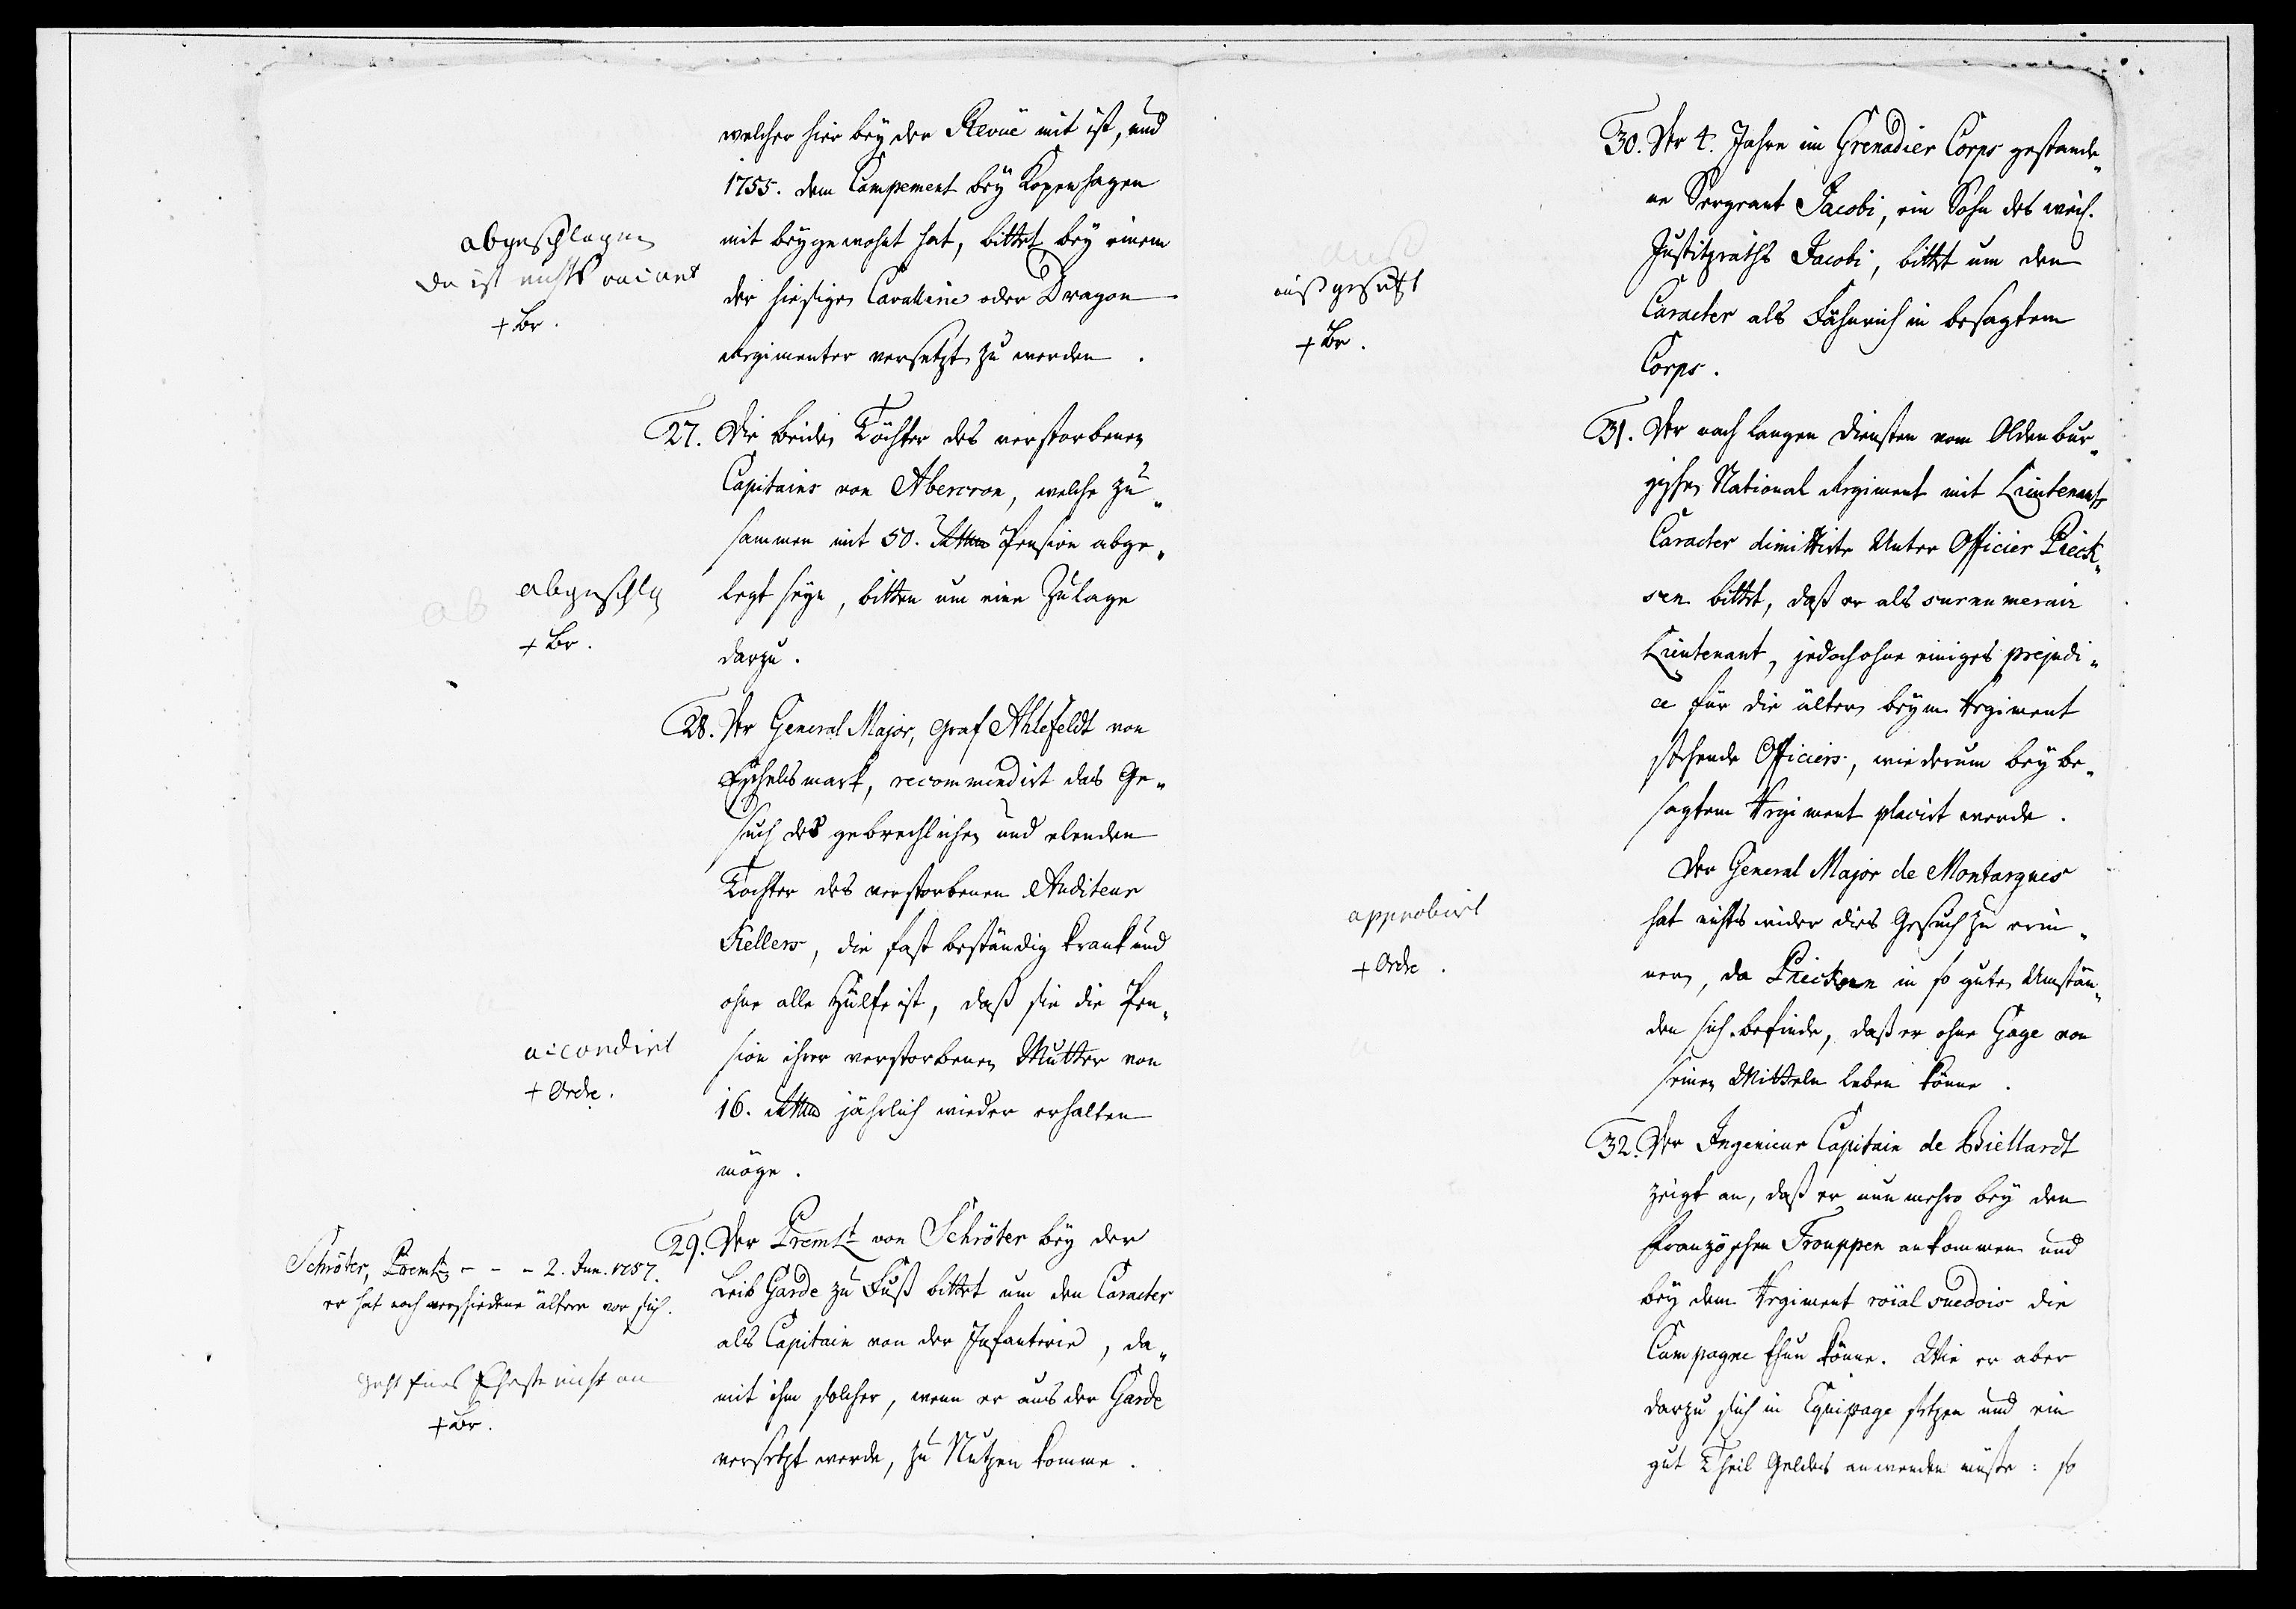 welcher hier bey der Revüe mit ist, und
1755. dem Campement bey Kopenhagen
mit beygewohnt hat, bittet bey einem
der hiesigen Cavallerie oder Dragon
Regimenter versetzt zu werden.
abgeschlagen
da ist nichts vacant
+ Br.
27. Die beiden Töchter des verstorbenen
Capitains von Abercron, welche zu„
sammen mit 50. Pension abge„
legt seyn, bitten um eine Zulage
darzu.
abgeschlg
+ Br.
28. Der General Major, Graf Ahlefeldt von
Eschelsmark, recommendirt das Ge„
such der gebrechlichen und elenden
Tochter des verstorbenen Auditeur
Kellers, die fast beständig krank und
ohne alle Hülfe ist, daß sie die Pen„
sion ihrer verstorbenen Mutter von
16. jährlich wieder erhalten
möge.
accordirt
+ Ordre.
29. Der Premlt von Schröter bey der
Leib Garde zu Fuß bittet um den Caracter
als Capitain von der Infanterie, da„
mit ihm solcher, wenn er aus der Garde
versetzt werde, zu Nutzen komme.
Schröter, Premlt - - - 2. Jun. 1757.
er hat noch verschiedene ältere vor sich.
geht fürs Erste nicht an
+ Br.
30. Der 4. Jahre im Grenadier Corps gestande„
ne Sergeant Jacobi, ein Sohn des weil.
Justitzraths Jacobi, bittet um den
Caracter als Fähnrich in besagtem
Corps.
ausgesetzt
+ Br.
31. Der nach langen Diensten vom Oldenbur„
gischen National Regiment mit Lieutenants
Caracter dimittirte Unter Officier Pieck„
sen bittet, daß er als surnumerair
Lieutenant, jedoch ohne einiges prejudi„
ce für die ältern beym Regiment
stehende Officiers, wiederum bey be„
sagtem Regiment placirt werde.
Der General Major de Montargues
hat nichts wider dies Gesuch zu erin„
nern, da Piecksen in so guten Umstän„
den sich befinde, daß er ohne Gage von
seinen Mitteln leben könne.
approbirt
+ Ordre.
32. Der Ingenieur Capitain de Biellardt
zeigt an, daß er nunmehro bey den
Französchen Trouppen ankommen und
bey dem Regiment roïal suedois die
Campagne thun könne. Wie er aber
darzu sich in Equipage setzen und ein
gut Theil Geldes anwenden müßte: so